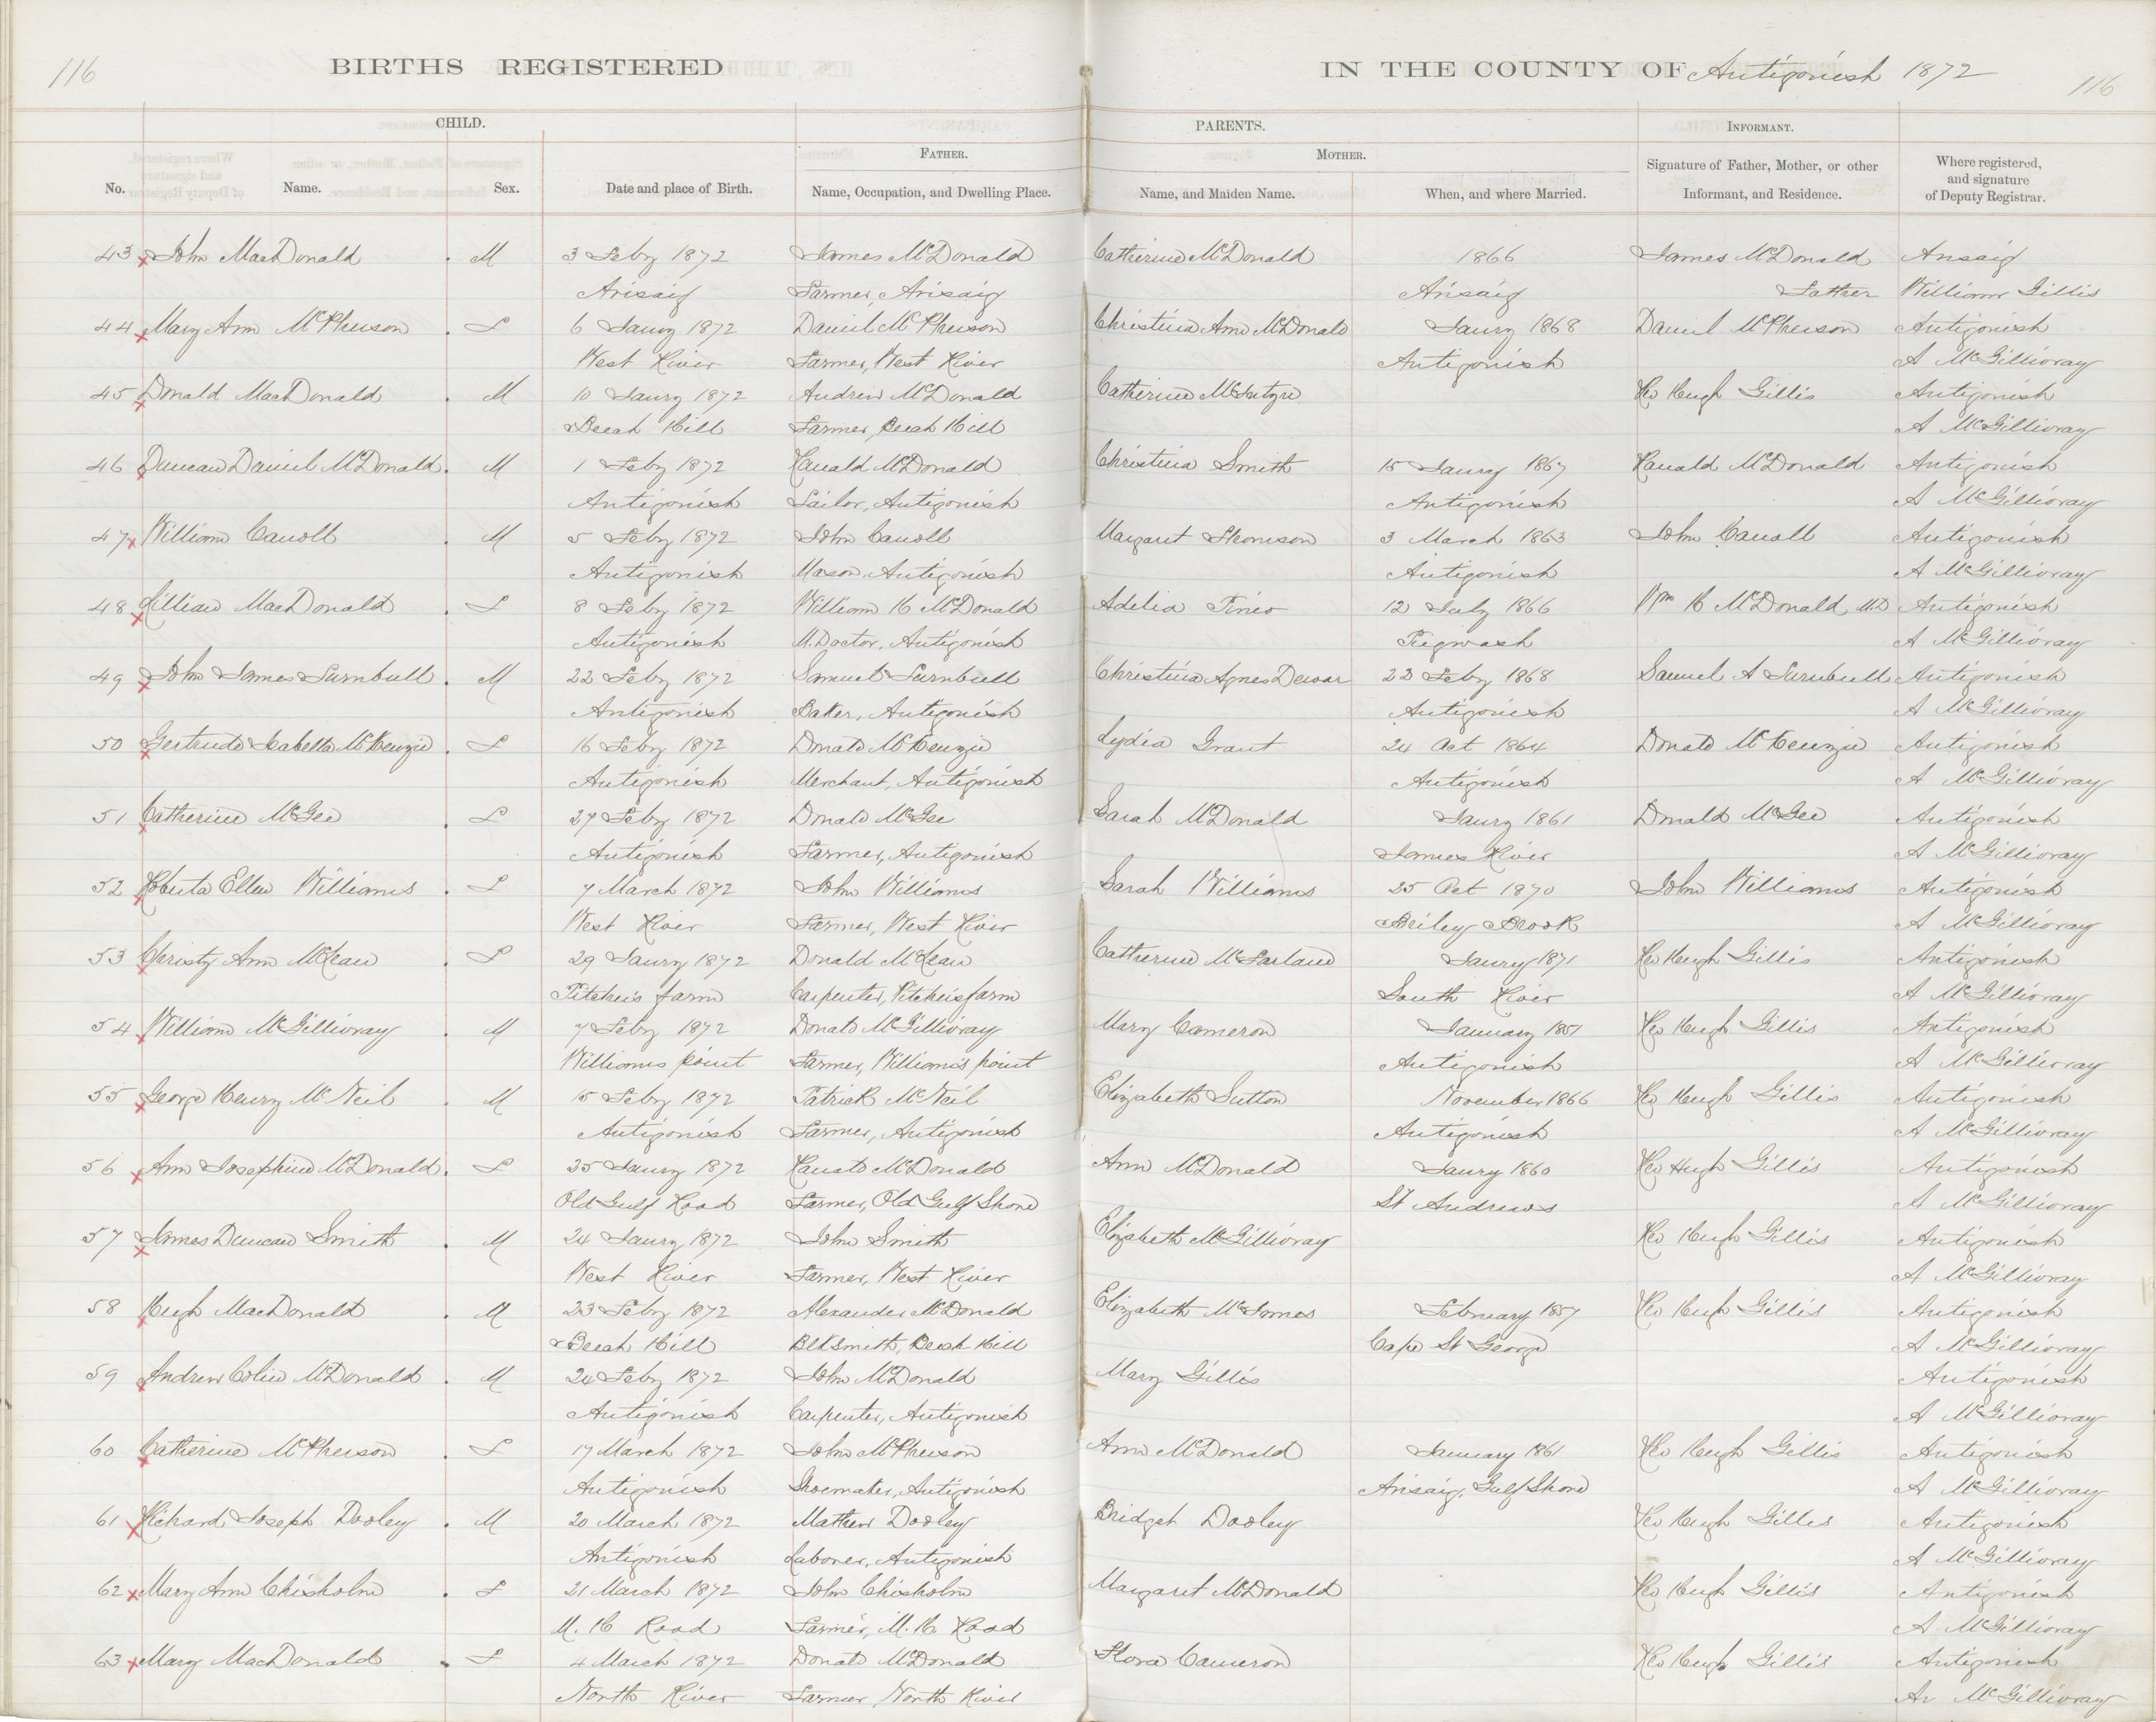 116
BIRTHS REGISTERED
IN THE COUNTY OF Antigonish 1872
116
CHILD.
PARENTS.
INFORMANT.
FATHER.
MOTHER.
Signature of Father, Mother, or other
Where registered,
and signature
No. Name. Sex. Date and place of Birth. Name, Occupation, and Dwelling Place. Name, and Maiden Name. When, and where Married. Informant, and Residence. of Deputy Registrar.
43 John MacDonald . M 3 Feby 1872 James McDonald Catherine McDonald 1866 James McDonald Arisaig
Arisaig Farmer, Arisaig Arisaig Father William Gillis
44 Mary Ann McPherson . F 6 Jaury 1872 Daniel McPherson Christina Ann McDonald Jaury 1868 Daniel McPherson Antigonish
West River Farmer, West River Antigonish A McGillivray
45 Donald MacDonald . M 10 Jaury 1872 Andrew McDonald Catherine McIntyre Rev Hugh Gillis Antigonish
Beech Hill Farmer, Beech Hill A McGillivray
46 Duncan Daniel McDonald . M 1 Feby 1872 Ranald McDonald Christina Smith 15 Jaury 1867 Ranald McDonald Antigonish
Antigonish Tailor, Antigonish Antigonish A McGillivray
47 William Carroll M 5 Feby 1872 John Carroll Margaret Thomson 3 March 1863 John Carroll Antigonish
Antigonish Mason, Antigonish Antigonish A McGillivray
48 Lillian MacDonald . F 8 Feby 1872 William H McDonald Adelia Pineo 12 July 1866 Wm H McDonald MD Antigonish
Antigonish M. Doctor, Antigonish Pugwash A McGillivray
49 John James Turnbull . M 22 Feby 1872 Samuel Turnbull Christina Agnes Dewar 22 Feby 1868 Samuel A Turnbull Antigonish
Antigonish Baker, Antigonish Antigonish A McGillivray
50 Gertrude Isabella McKenzie . F 16 Feby 1872 Donald McKenzie Lydia Grant 24 Oct 1864 Donald McKenzie Antigonish
Antigonish Merchant, Antigonish Antigonish A McGillivray
51 Catherine McGee . F 27 Feby 1872 Donald McGee Sarah McDonald Jaury 1861 Donald McGee Antigonish
Antigonish Farmer, Antigonish James River A McGillivray
52 Roberta Ellen Williams . F 7 March 1872 John Williams Sarah Williams 25 Oct 1870 John Williams Antigonish
West River Farmer, West River Briley Brook A McGillivray
53 Christy Ann McLean . F 29 Jaury 1872 Donald McLean Catherine McFarland Jaury 1871 Rev Hugh Gillis Antigonish
Pitcheis farm Carpenter, Pitcheis farm South River A McGillivray
54 William McGillivray . M 7 Feby 1872 Donald McGillivray Mary Cameron January 1851 Rev Hugh Gillis Antigonish
Williams point Farmer, Williams point Antigonish A McGillivray
55 George Henry McNeil . M 15 Feby 1872 Patrick McNeil Elizabeth Sutton November 1866 Rev Hugh Gillis Antigonish
Antigonish Farmer, Antigonish Antigonish A McGillivray
56 Ann Josephine McDonald . F 25 Jaury 1872 Ranald McDonald Ann McDonald Jaury 1860 Rev Hugh Gillis Antigonish
Old Gulf Road Farmer, Old Gulf Shore St Andrews A McGillivray
57 James Duncan Smith . M 24 Jaury 1872 John Smith Elizabeth McGillivray Rev Hugh Gillis Antigonish
West River Farmer, West River A McGillivray
58 Hugh MacDonald . M 23 Feby 1872 Alexander McDonald Elizabeth McJames February 1857 Rev Hugh Gillis Antigonish
Beech Hill Blksmith, Beech Hill Cape St George A McGillivray
59 Andrew Colin McDonald . M 24 Feby 1872 John McDonald Mary Gillis Antigonish
Antigonish Carpenter, Antigonish A McGillivray
60 Catherine McPherson . F 17 March 1872 John McPherson Ann McDonald January 1861 Rev Hugh Gillis Antigonish
Antigonish Shoemaker, Antigonish Arisaig, Gulf Shore A McGillivray
61 Richard Joseph Dooley . M 20 March 1872 Mathew Dooley Bridget Dooley Rev Hugh Gillis Antigonish
Antigonish Laborer, Antigonish A McGillivray
62 Mary Ann Chisholm . F 21 March 1872 John Chisholm Margaret McDonald Rev Hugh Gillis Antigonish
M. H Road Farmer, M. H. Road A McGillivray
63 Mary MacDonald . F 4 March 1872 Donald McDonald Flora Cameron Rev Hugh Gillis Antigonish
North River Farmer, North River A McGillivray